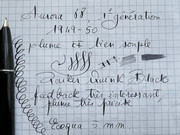 Aurora 88, 1e génération
1949-50
plume et bien souple
Parker Quink Black
feedback très intéressant,
plume très
Ecoqua 5 mm